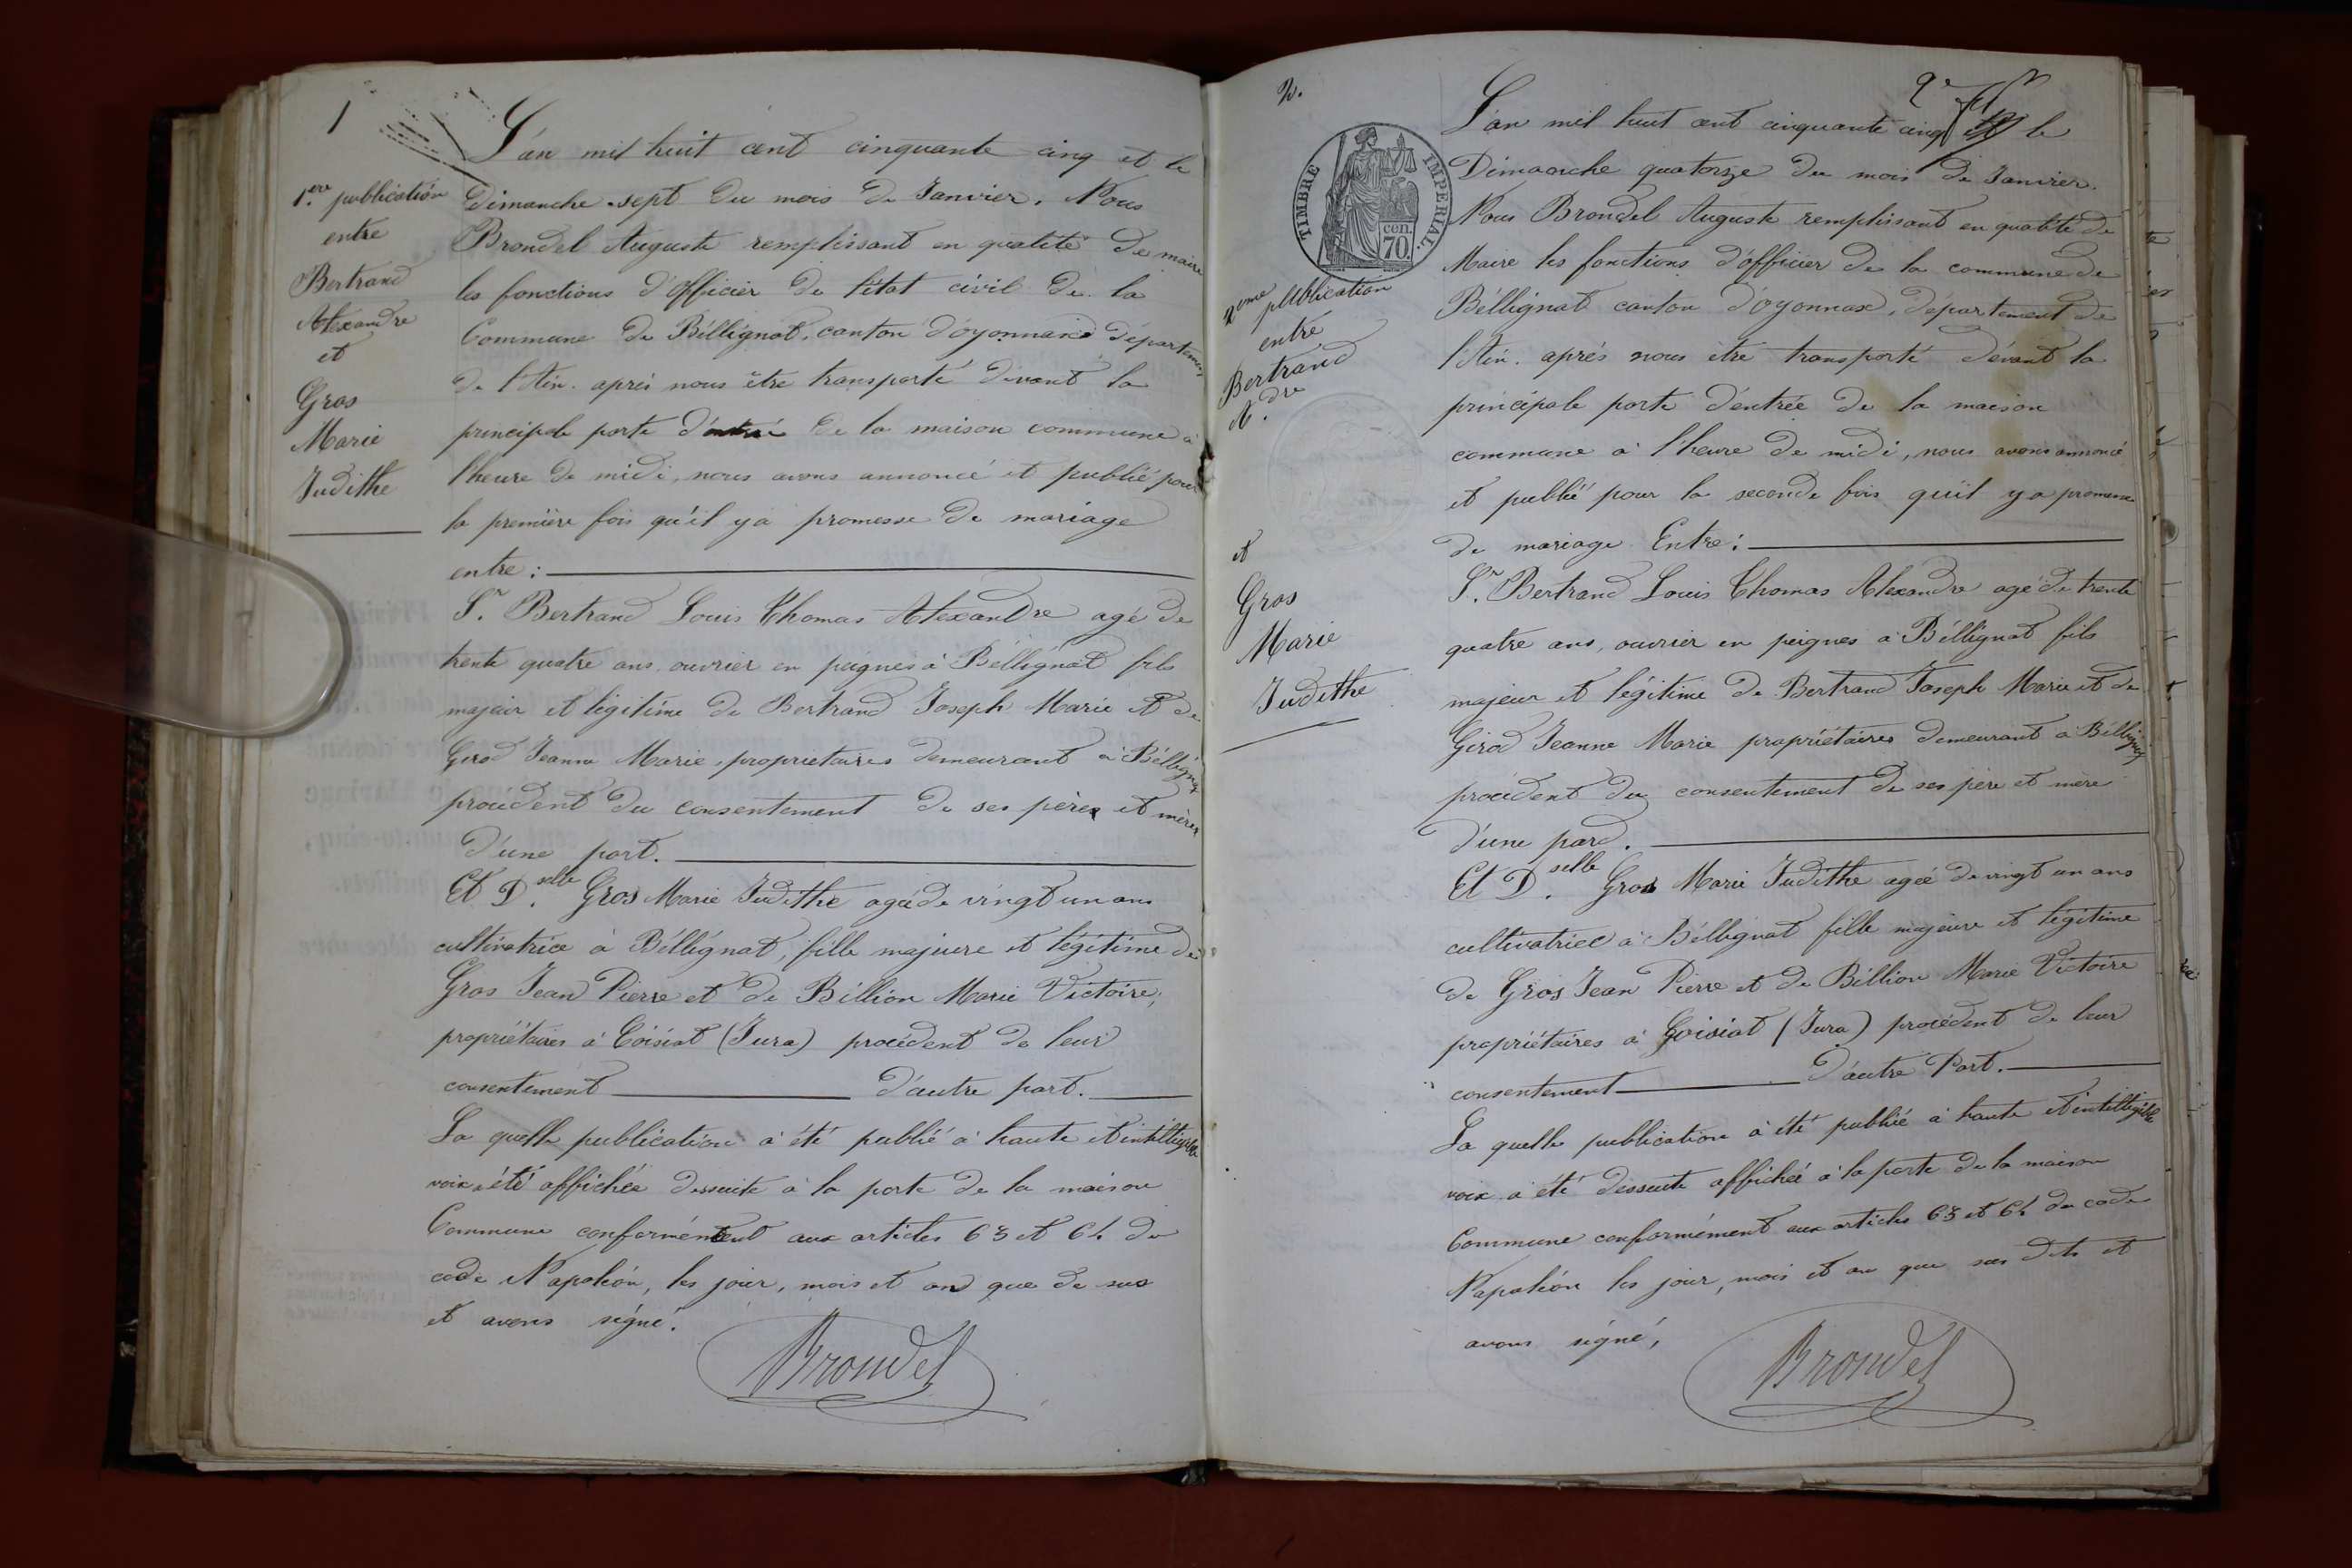 1
1.ere publication
entre
Bertrand
Alexandre
et
Gros
Marie
Judithe
L'an mil huit cent cinquante cinq et le
dimanche sept du mois de Janvier. Nous
Brondel Auguste remplissant en qualité de maire
les fonctions d'officier de l'état civil de la
Commune de Béllignat, canton d'oyonnax département
de l'Ain. après nous être transporté dévant la
principale porte d'entrée de la maison commune à
l'heure de midi, nous avons annoncé et publié pour
la première fois qu'il y a promesse de mariage
entre :
Sr. Bertrand Louis Thomas Alexandre agé de
trente quatre ans ouvrier en peignes à Béllignat fils
majeur et légitime de Bertrand Joseph Marie et de
Girod Jeanne Marie, propriétaires demeurant à Béllignat
procédent du consentement de ses pères et mères
d'une part.
Et D.selle Gros Marie Judithe agée de vingt un ans
cultivatrice à Béllignat, fille majeure et légitime de
Gros Jean Pierre et de Billion Marie Victoire,
propriétaires à Coisiat (Jura) procédent de leur
consentement d'autre part.
La quelle publication a été publié à haute et intelligible
voix a été affichée dessuite à la porte de la maison
Commune conformément aux articles 63 et 64 du
code Napoléon, les jour, mois et an que de sus
et avons signé.
Brondel
2.
2eme publication
entre
Bertrand
A.dre
et
Gros
Marie
Judithe
TIMBRE IMPERIAL.
cen.
70.
2e
L'an mil huit cent cinquante cinq et le
Dimanche quatorze du mois de Janvier.
Nous Brondel Auguste remplissant en qualité de
Maire les fonctions d'officier de la commune de
Béllignat canton d'oyonnax, département de
l'Ain. après nous être transporté dévant la
principale porte d'entrée de la maison
commune à l'heure de midi, nous avons annoncé
et publié pour la seconde fois qu'il y a promesse
de mariage Entre :
Sr. Bertrand Louis Thomas Alexandre agé de trente
quatre ans, ouvrier en peignes à Béllignat fils
majeur et légitime de Bertrand Joseph Marie et de
Girod Jeanne Marie propriétaires demeurant à Béllignat
procédent du consentement de ses père et mère
d'une pard.
Et D.selle Gros Marie Judithe agée de vingt un ans
cultivatrice à Béllignat fille majeure et légitime
de Gros Jean Pierre et de Billion Marie Victoire
propriétaires à Coisiat (Jura) procédent de leur
consentement d'autre Part.
La quelle publication à été publiée à haute et intelligible
voix a été dessuite affichée à la porte de la maison
Commune conformément aux articles 63 et 64 du code
Napoléon les jour, mois et an que sus dits et
avons signé,
Brondel